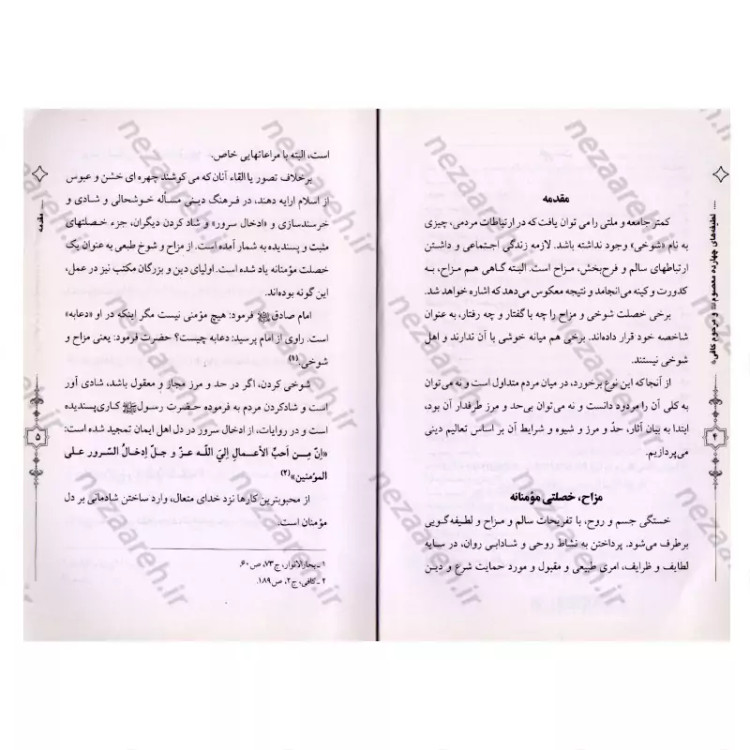 ... لطیفه‌های چهارده معصوم و مرحوم کافی
مقدمه
کمتر جامعه و ملتی را می توان یافت که در ارتباطات مردمی، چیزی
به نام «شوخی» وجود نداشته باشد. لازمه زندگی اجتماعی و داشتن
ارتباطهای سالم و فرح‌بخش، مزاح است. البته گاهی هم مزاح، به
کدورت و کینه می‌انجامد و نتیجه معکوس می‌دهد که اشاره خواهد شد.
برخی خصلت شوخی و مزاح را چه با گفتار و چه رفتار، به عنوان
شاخصه خود قرار داده‌اند. برخی هم میانه خوشی با آن ندارند و اهل
شوخی نیستند.
از آنجا که این نوع برخورد، در میان مردم متداول است و نه می‌توان
به کلی آن را مردود دانست و نه می‌توان بی‌حد و مرز طرفدار آن بود،
ابتدا به بیان آثار، حدّ و مرز و شیوه و شرایط آن بر اساس تعالیم دینی
می‌پردازیم.
مزاح، خصلتی مؤمنانه
خستگی جسم و روح، با تفریحات سالم و مزاح و لطیفه‌گویی
برطرف می‌شود. پرداختن به نشاط روحی و شادابی روان، در سایه
لطایف و ظرایف، امری طبیعی و مقبول و مورد حمایت شرع و دین
۴
است، البته با مراعاتهایی خاص.
برخلاف تصور یا القاء آنان که می کوشند چهره ای خشن و عبوس
از اسلام ارایه دهند، در فرهنگ دینی مسأله خوشحالی و شادی و
خرسندسازی و «ادخال سرور» و شاد کردن دیگران، جزء خصلتهای
مثبت و پسندیده به شمار آمده است. از مزاح و شوخ طبعی به عنوان یک
خصلت مؤمنانه یاد شده است. اولیای دین و بزرگان مکتب نیز در عمل،
این گونه بوده‌اند.
امام صادق فرمود: هیچ مؤمنی نیست مگر اینکه در او «دعابه»
است. راوی از امام پرسید: دعابه چیست؟ حضرت فرمود: یعنی مزاح و
شوخی.(۱)
شوخی کردن، اگر در حد و مرز مجاز و معقول باشد، شادی آور
است و شادکردن مردم به فرموده حضرت رسول کاری‌پسندیده
است و در روایات، از ادخال سرور در دل اهل ایمان تمجید شده است:
«اِنَّ مِـن اَحبِّ الأعمـالِ اِلیَ اللّـه عـزّ و جـلّ اِدخالُ السُّـرورِ علـی
المؤمنین»(۲)
از محبوبترین کارها نزد خدای متعال، وارد ساختن شادمانی بر دل
مؤمنان است.
۱ـ بحارالانوار، ج۷۳، ص۶۰.
۲ـ کافی، ج۲، ص۱۸۹.
مقدمه
۵
nezaareh.ir
nezaareh.ir
nezaareh.ir
nezaareh.ir
nezaareh.ir
nezaareh.ir